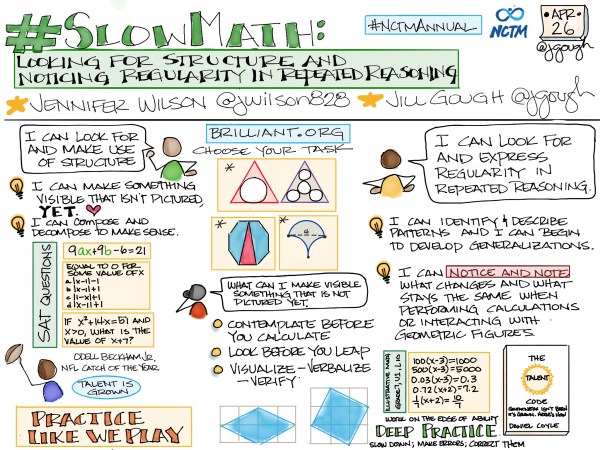 #SLOWMATH:
#NCTMANNUAL
NCTM
APR
26
@jgough
LOOKING FOR STRUCTURE AND
NOTICING REGULARITY IN REPEATED REASONING
JENNIFER WILSON @jwilson828
JILL GOUGH @jgough
I CAN LOOK FOR
AND MAKE USE
OF STRUCTURE
I CAN MAKE SOMETHING
VISIBLE THAT ISN'T PICTURED,
YET.
I CAN COMPOSE AND
DECOMPOSE TO MAKE SENSE.
SAT QUESTIONS
9ax+9b-6=21
EQUAL TO 0 FOR
SOME VALUE OF X
a |x-1|-1
b |x-1|+1
c |1-x|+1
d |x-1|+1
IF x²+14x=51 AND
x>0, WHAT IS THE
VALUE OF x+7?
ODELL BECKHAM JR.
NFL CATCH OF THE YEAR
TALENT IS
GROWN
PRACTICE
LIKE WE PLAY
BRILLIANT.ORG
CHOOSE YOUR TASK
WHAT CAN I MAKE VISIBLE
SOMETHING THAT IS NOT
PICTURED YET.
CONTEMPLATE BEFORE
YOU CALCULATE
LOOK BEFORE YOU LEAP
VISUALIZE - VERBALIZE
- VERIFY
I CAN LOOK FOR
AND EXPRESS
REGULARITY IN
REPEATED REASONING.
I CAN IDENTIFY & DESCRIBE
PATTERNS AND I CAN BEGIN
TO DEVELOP GENERALIZATIONS.
I CAN NOTICE AND NOTE
WHAT CHANGES AND WHAT
STAYS THE SAME WHEN
PERFORMING CALCULATIONS
OR INTERACTING WITH
GEOMETRIC FIGURES.
ILLUSTRATIVE MATH
100(x-3)=1000
500(x-3)=5000
0.03(x-3)=0.3
0.72(x+2)=7.2
1/7(x+2)=10/7
THE
TALENT
CODE
GREATNESS ISN'T BORN
IT'S GROWN. HERE'S HOW
DANIEL COYLE
WORK ON THE EDGE OF ABILITY
DEEP PRACTICE
SLOW DOWN; MAKE ERRORS; CORRECT THEM